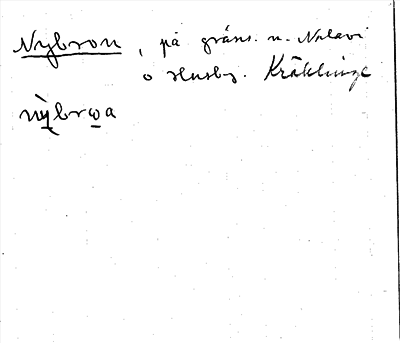 Nybron, på gräns. m. Nalavi
o Husby. Kräcklinge
nỳbrωa